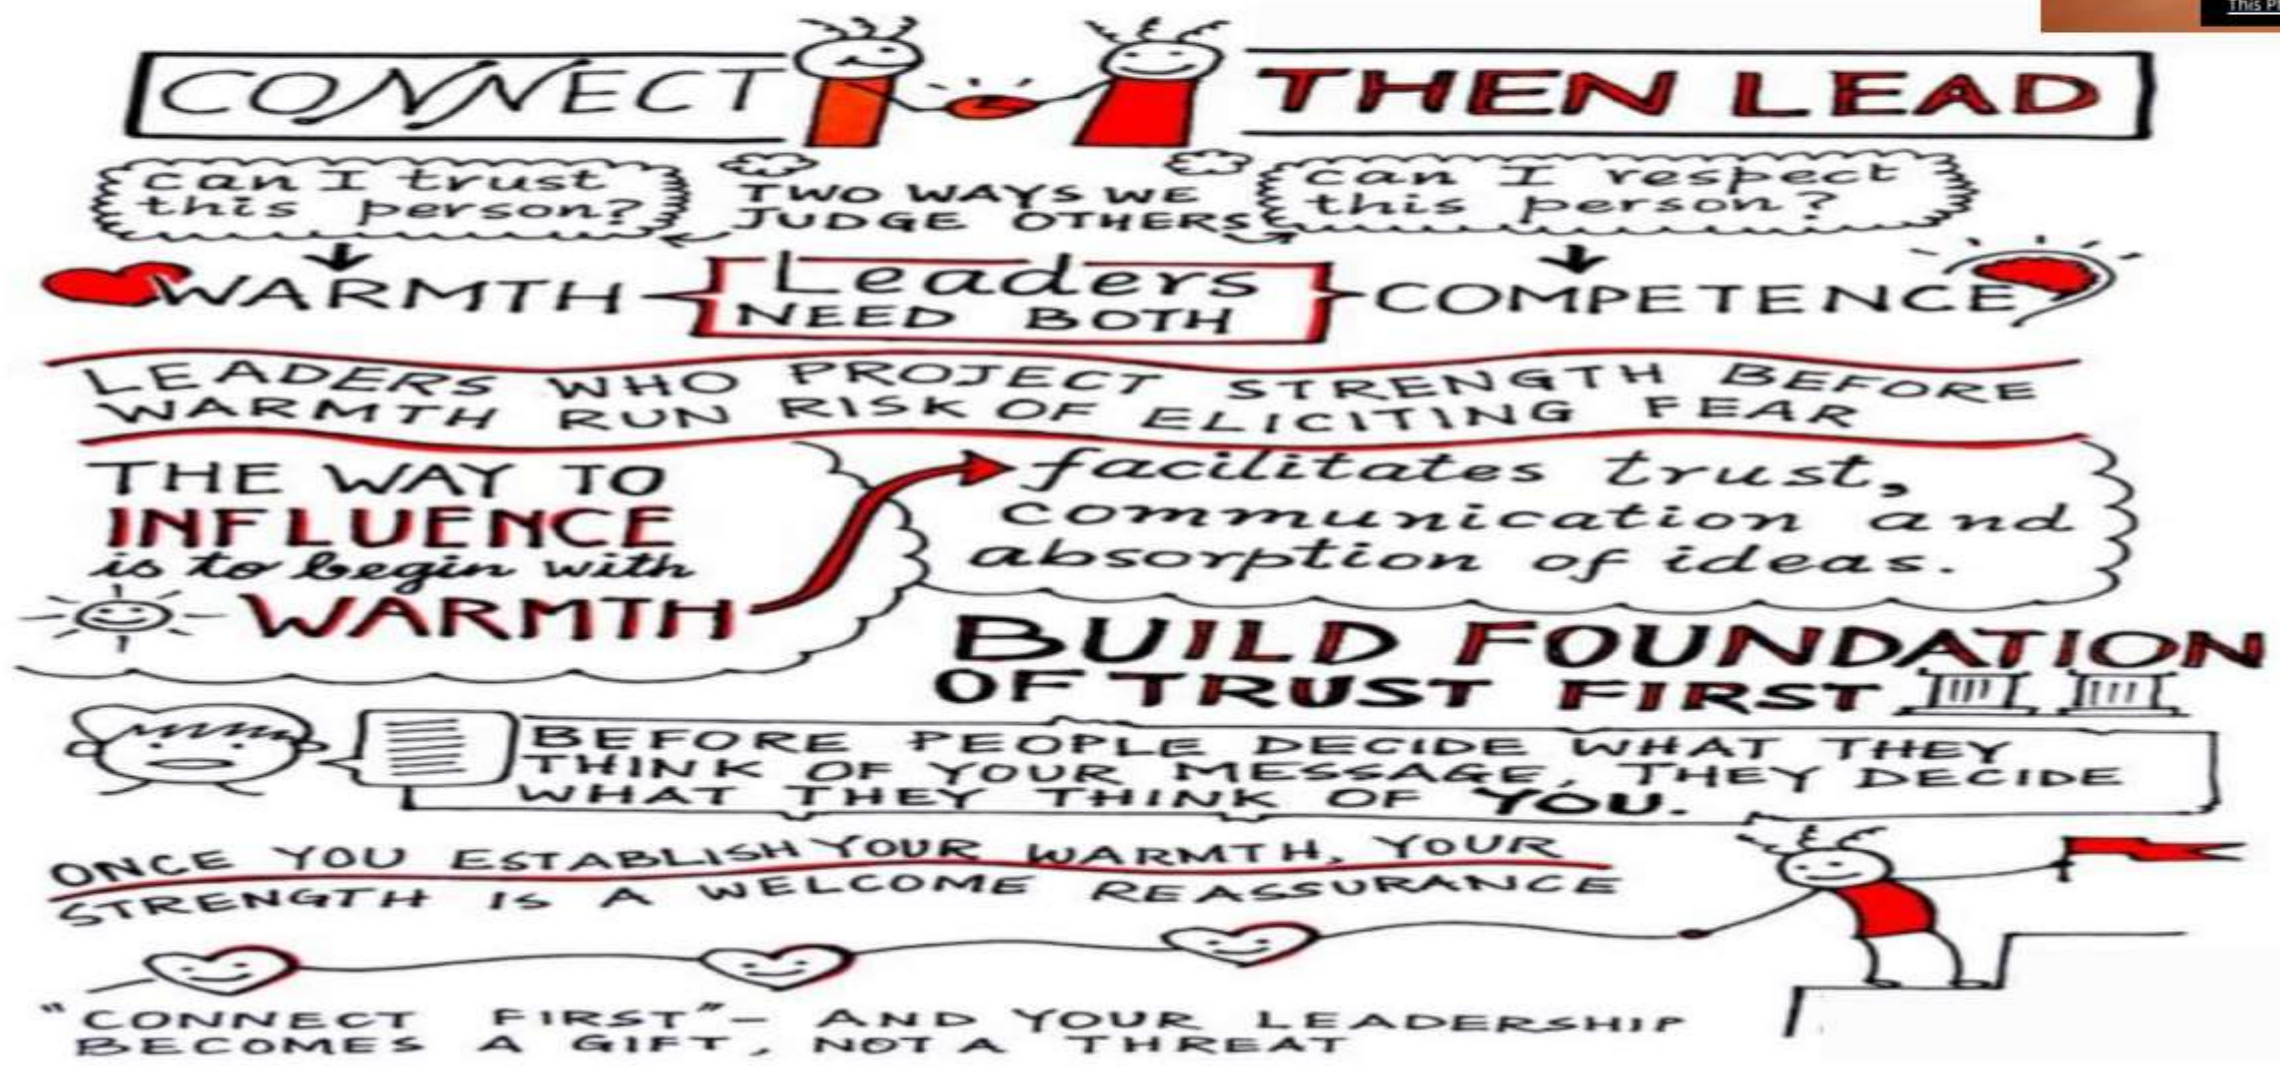 This
CONNECT THEN LEAD
can I trust
this person?
TWO WAYS WE
JUDGE OTHERS
can I respect
this person?
WARMTH
Leaders
NEED BOTH
COMPETENCE
LEADERS WHO PROJECT STRENGTH BEFORE
WARMTH RUN RISK OF ELICITING FEAR
THE WAY TO
INFLUENCE
is to begin with
WARMTH
facilitates trust,
communication and
absorption of ideas.
BUILD FOUNDATION
OF TRUST FIRST
BEFORE PEOPLE DECIDE WHAT THEY
THINK OF YOUR MESSAGE, THEY DECIDE
WHAT THEY THINK OF YOU.
ONCE YOU ESTABLISH YOUR WARMTH, YOUR
STRENGTH IS A WELCOME REASSURANCE
"CONNECT FIRST" - AND YOUR LEADERSHIP
BECOMES A GIFT, NOT A THREAT